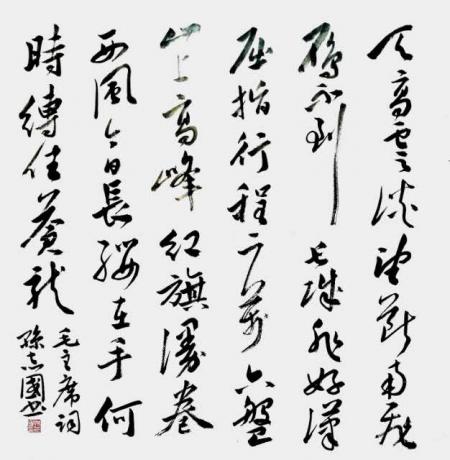 天高雲淡望斷南飛
雁不到长城非好漢
屈指行程二萬六盤
山上高峰紅旗漫卷
西風今日長纓在手何
時縛住蒼龍
毛主席詞
孫志國書